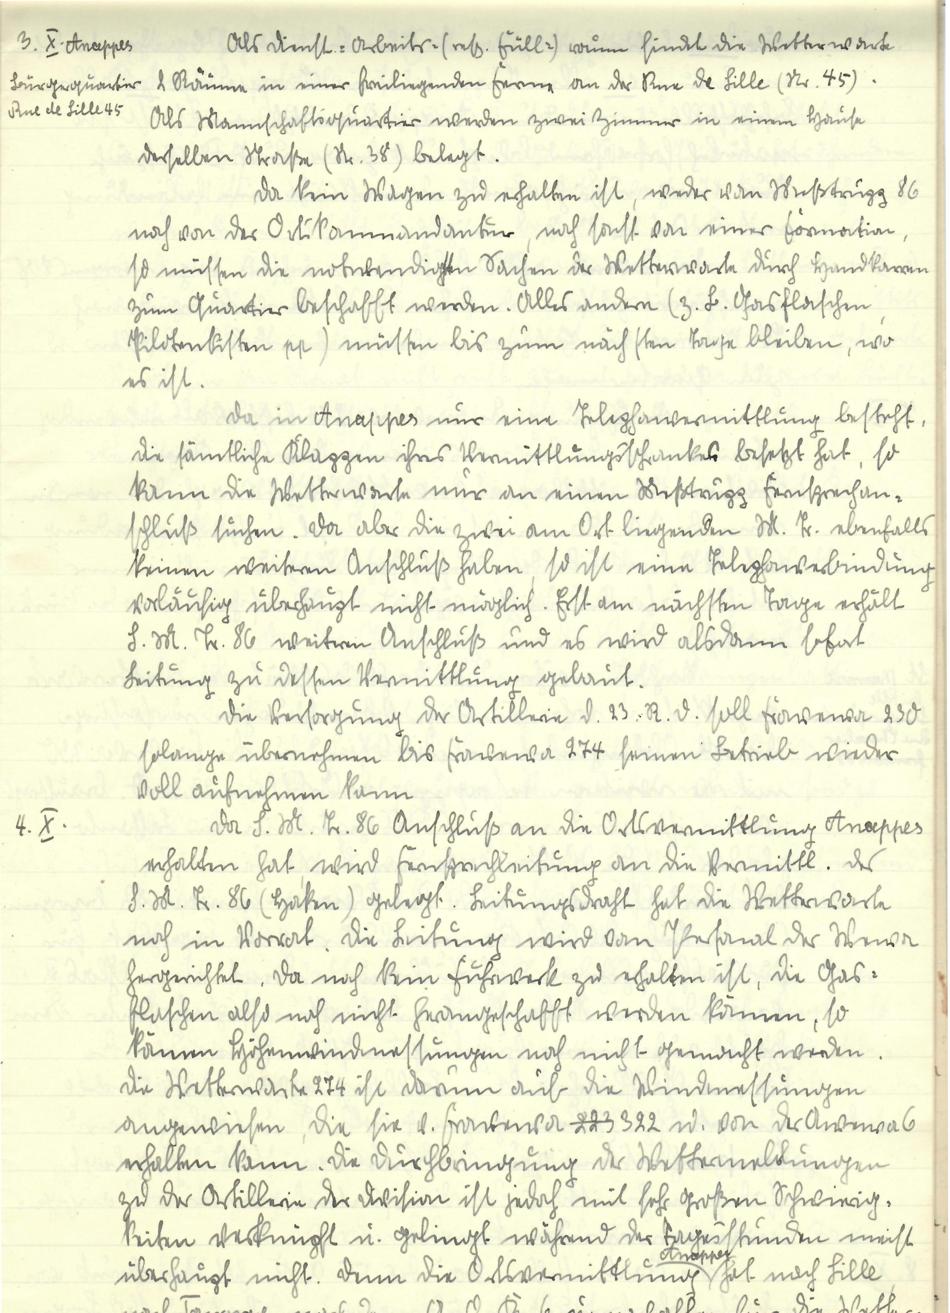 3. X. Anappes
Bürgerquartier
Rue de Lille 45
Als Dienst= Arbeits=(resp. Füll=) raum findet die Wetterwarte
2 Räume in einer freiliegenden Ferme an der Rue de Lille (Nr. 45).
Als Mannschaftsquartier werden zwei Zimmer in einem Hause
derselben Straße (Nr. 38) belegt.
Da kein Wagen zu erhalten ist, weder von Meßtrupp 86
noch von der Ortskommandantur, noch sonst von einer Formation,
so müssen die notwendigsten Sachen der Wetterwarte durch Handkarren
zum Quartier beschafft werden. Alles andere (z. B. Gasflaschen,
Pilotenkisten pp) müssen bis zum nächsten Tage bleiben, wo
es ist.
Da in Anappes nur eine Telephonvermittlung besteht,
die sämtliche Klappen ihres Vermittlungsschrankes besetzt hat, so
kann die Wetterwarte nur an einen Meßtrupp Fernsprechan=
schluß suchen. Da aber die zwei am Ort liegenden M. Tr. ebenfalls
keinen weiteren Anschluß haben, so ist eine Telephonverbindung
vorläufig überhaupt nicht möglich. Erst am nächsten Tage erhält
S. M. Tr. 86 weiteren Anschluß und es wird alsdann sofort
Leitung zu dessen Vermittlung gebaut.
Die Versorgung der Artillerie d. 23. R. D. soll Frawewa 230
solange übernehmen bis Frawewa 274 seinen Betrieb wieder
voll aufnehmen kann
4. X.
Da S. M. Tr. 86 Anschluß an die Ortsvermittlung Anappes
erhalten hat wird Fernsprechleitung an die Vermittl. des
S. M. Tr. 86 (Haken) gelegt. Leitungsdraht hat die Wetterwarte
noch in Vorrat. Die Leitung wird vom Personal der Wewa
hergerichtet. Da noch kein Fuhrwerk zu erhalten ist, die Gas=
flaschen also noch nicht herangeschafft werden können, so
können Höhenwindmessungen noch nicht gemacht werden.
Die Wetterwarte 274 ist darum auf die Windmessungen
angewiesen, die sie v. Frawewa 322 u. von der Awewa 6
erhalten kann. Die Durchbringung der Wettermeldungen
zu der Artillerie der Division ist jedoch mit sehr großen Schwierig=
keiten verknüpft u. gelingt während der Tagesstunden meist
überhaupt nicht. Denn die Ortsvermittlung Anappes hat nach Lille